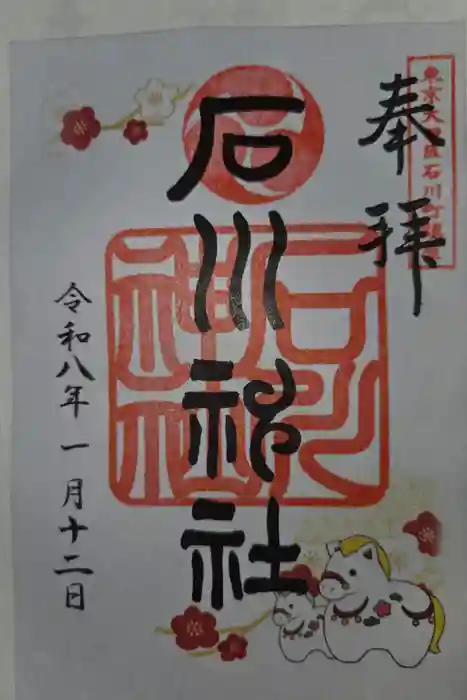 東京大田区石川町鎮座
奉拝
石川神社
石川神社
令和八年一月十二日